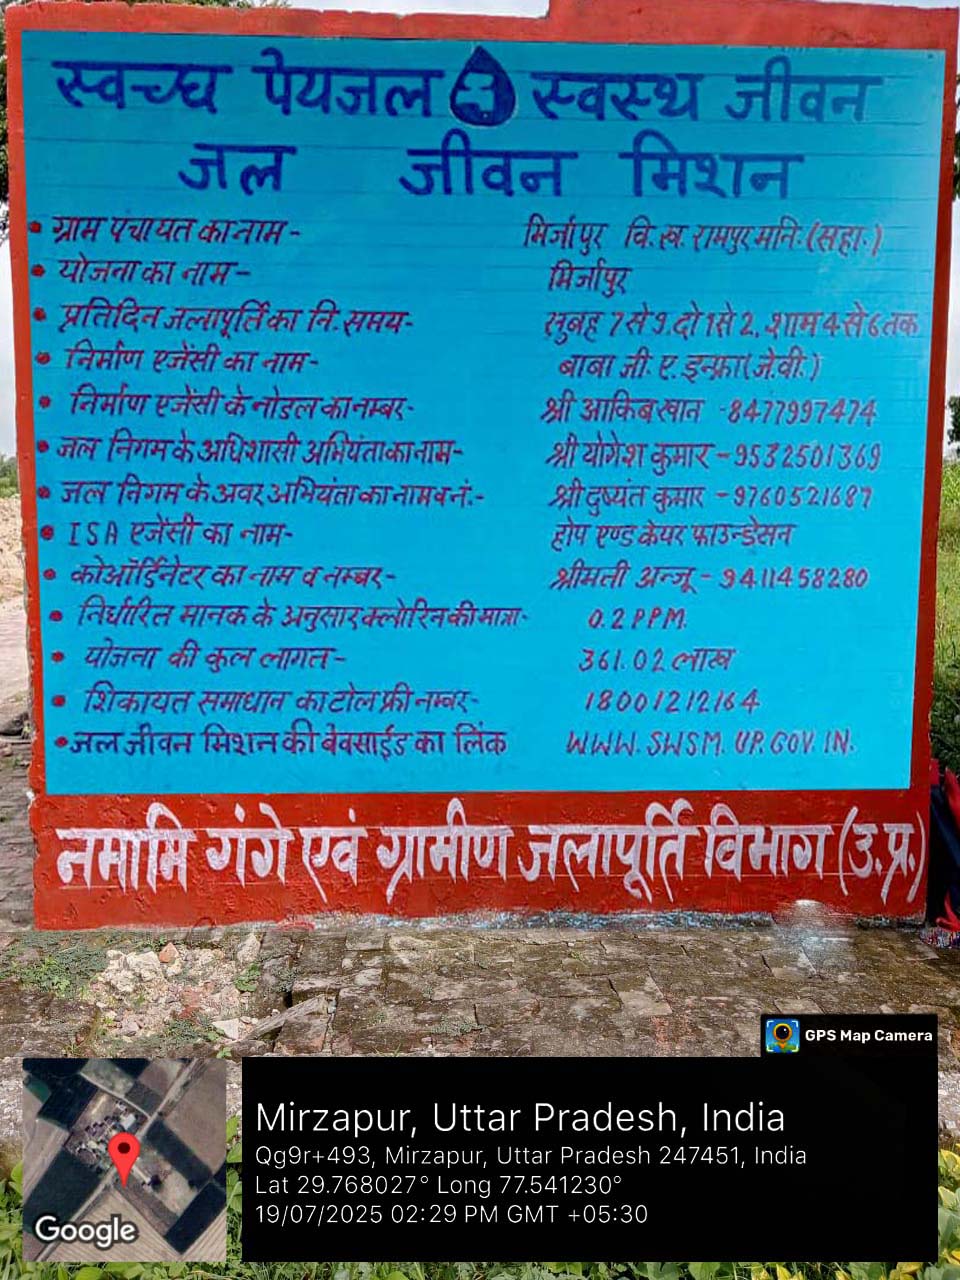 स्वच्घ पेयजल स्वस्थ जीवन
जल जीवन मिशन
• ग्राम पंचायत का नाम - मिर्जापुर वि. ख. रामपुर मनि. (सहा.)
• योजना का नाम - मिर्जापुर
• प्रतिदिन जलापूर्ति का नि. समय - सुबह 7 से 9. दो 1 से 2. शाम 4 से 6 तक
• निर्माण एजेंसी का नाम - बाबा जी. ए. इन्फ्रा (जे.वी.)
• निर्माण एजेंसी के नोडल का नम्बर - श्री आकिब खान - 8477997474
• जल निगम के अधिशासी अभियंता का नाम - श्री योगेश कुमार - 9532501369
• जल निगम के अवर अभियंता का नाम व नं. - श्री दुष्यंत कुमार - 9760521687
• ISA एजेंसी का नाम - होप एण्ड केयर फाउन्डेसन
• कोऑर्डिनेटर का नाम व नम्बर - श्रीमती अन्जू - 9411458280
• निर्धारित मानक के अनुसार क्लोरिन की मात्रा - 0.2 PPM.
• योजना की कुल लागत - 361.02 लाख
• शिकायत समाधान का टोल फ्री नम्बर - 18001212164
• जल जीवन मिशन की बेवसाईड का लिंक WWW. SWSM. UP. GOV. IN.
नमामि गंगे एवं ग्रामीण जलापूर्ति विभाग (उ.प्र.)
GPS Map Camera
Mirzapur, Uttar Pradesh, India
Qg9r+493, Mirzapur, Uttar Pradesh 247451, India
Lat 29.768027° Long 77.541230°
19/07/2025 02:29 PM GMT +05:30
Google